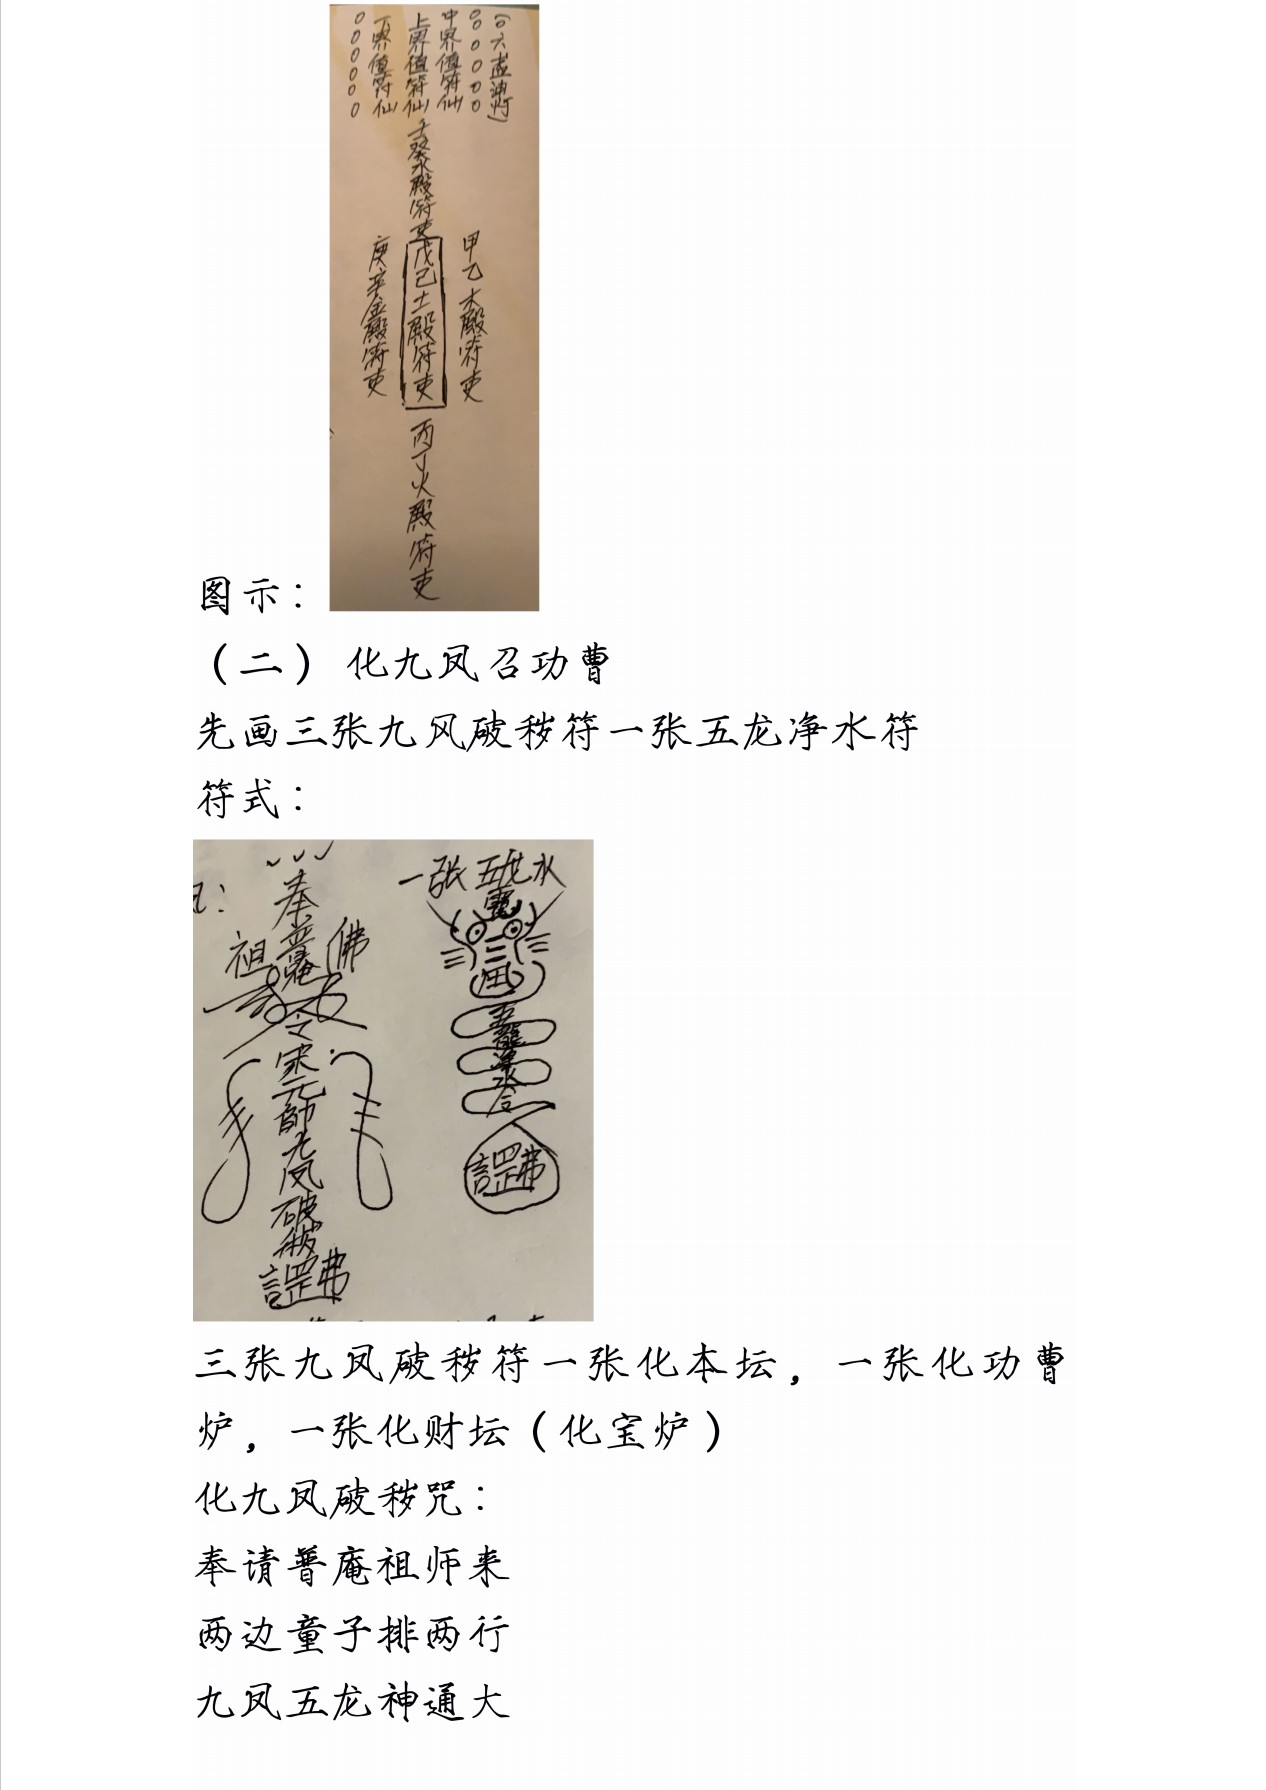 (0六盏油灯)
000000
中界值符仙
上界值符仙
下界值符仙
000000
壬癸水殿符吏
甲乙木殿符吏
戊己土殿符吏
庚辛金殿符吏
丙丁火殿符吏
图示：
（二） 化九凤召功曹
先画三张九风破秽符一张五龙净水符
符式：
一张五龙水
奉普庵
祖
佛
令
宋元帅九凤破秽
五龍净水令
三张九凤破秽符一张化本坛，一张化功曹
炉，一张化财坛（化宝炉）
化九凤破秽咒：
奉请普庵祖师来
两边童子排两行
九凤五龙神通大